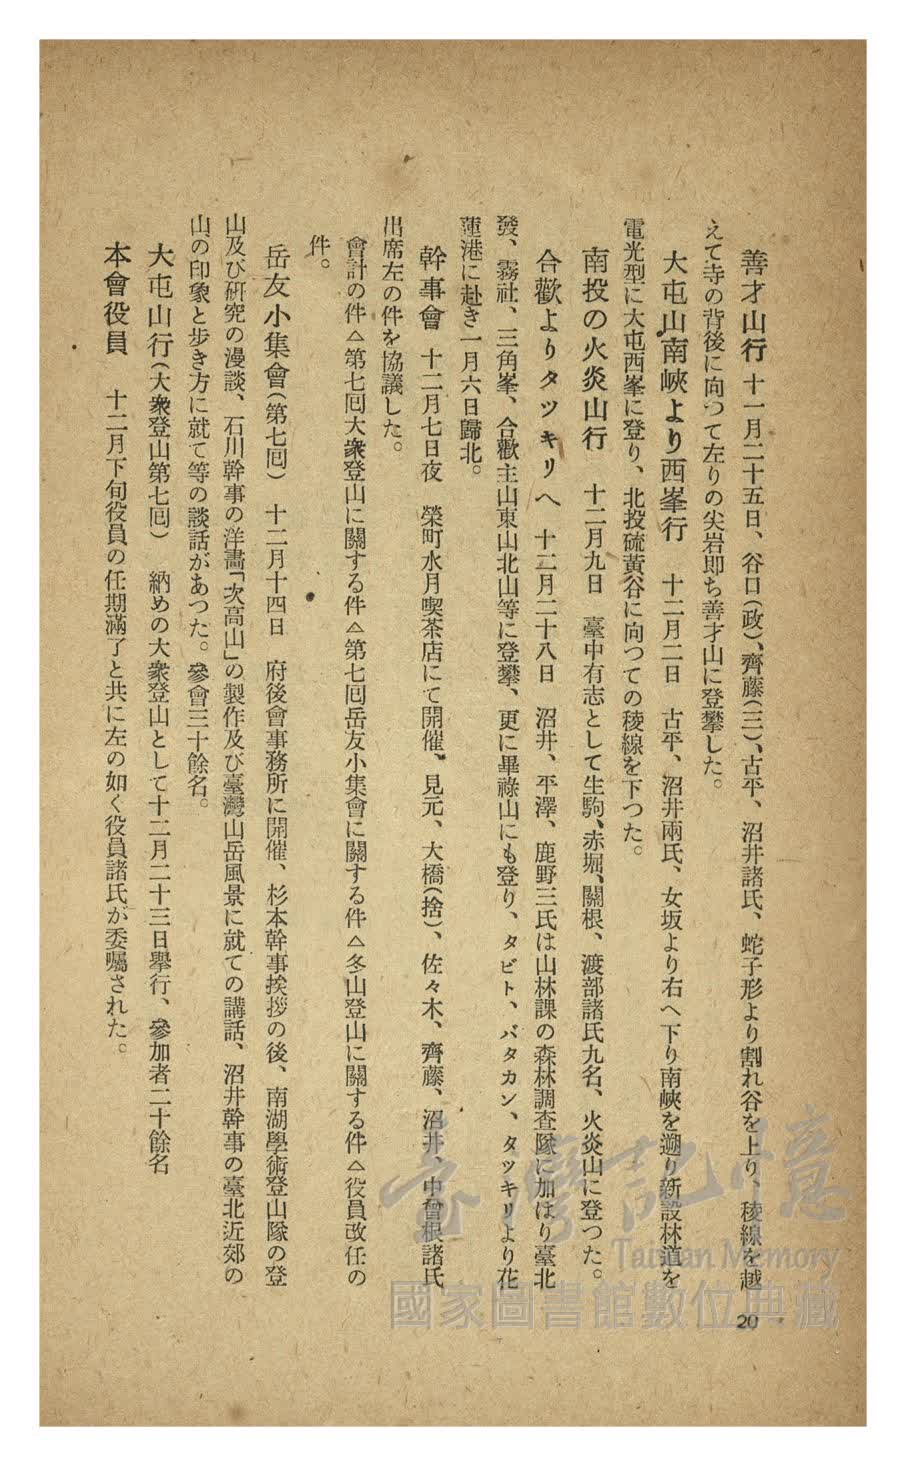 善才山行 十一月二十五日、谷口(政)、齊藤(三)、古平、沼井諸氏、蛇子形より割れ谷を上り、稜線を越
えて寺の背後に向つて左りの尖岩即ち善才山に登攀した。
大屯山南峽より西峯行 十二月二日 古平、沼井兩氏、女坂より右へ下り南峽を遡り新設林道を
電光型に大屯西峯に登り、北投硫黃谷に向つての稜線を下つた。
南投の火炎山行 十二月九日 臺中有志として生駒、赤堀、關根、渡部諸氏九名、火炎山に登つた。
合歡よりタツキリへ 十二月二十八日 沼井、平澤、鹿野三氏は山林課の森林調查隊に加はり臺北
發、霧社、三角峯、合歡主山東山北山等に登攀、更に畢祿山にも登り、タビト、バタカン、タツキリより花
蓮港に赴き一月六日歸北。
幹事會 十二月七日夜 榮町水月喫茶店にて開催、見元、大橋(捨)、佐々木、齊藤、沼井、中曾根諸氏
出席左の件を協議した。
會計の件△第七囘大衆登山に關する件△第七囘岳友小集會に關する件△冬山登山に關する件△役員改任の
件。
岳友小集會(第七囘) 十二月十四日 府後會事務所に開催、杉本幹事挨拶の後、南湖學術登山隊の登
山及び硏究の漫談、石川幹事の洋畵「次高山」の製作及び臺灣山岳風景に就ての講話、沼井幹事の臺北近郊の
山の印象と歩き方に就て等の談話があつた。參會三十餘名。
大屯山行(大衆登山第七囘) 納めの大衆登山として十二月二十三日擧行、參加者二十餘名
本會役員 十二月下旬役員の任期滿了と共に左の如く役員諸氏が委囑された。
20
臺灣記憶
Taiwan Memory
國家圖書館數位典藏